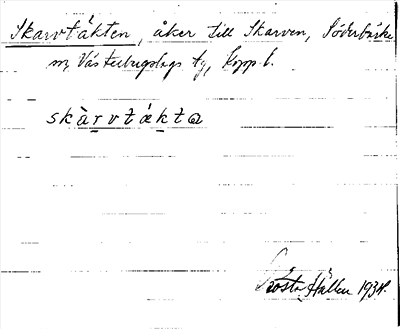 Skarvtäkten, åker till Skarven, Söderbärke
sn, Västerbergslags tg, Kopp. l.
skàrvtǽkta
Gösta Hallén 1934.